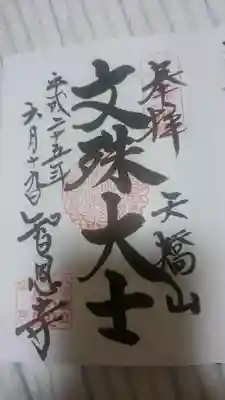 奉拝
天橋山
文殊大士
智恩寺
平成二十五年
六月十九日